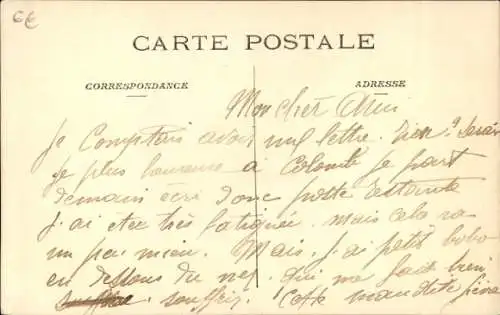 CE
CARTE POSTALE
CORRESPONDANCE
ADRESSE
Mon cher Ami
Je Comptais avoir une lettre. Rien? Serai
Je plus heureuse à Colombe je part
Demain écri Donc poste restante
J'ai etée très fatiguée. Mais cela va
un peu mieu. Mais, j'ai petit bobo
en dessous du nez. qui me fait bien
souffrir. Cette maudite fièvre